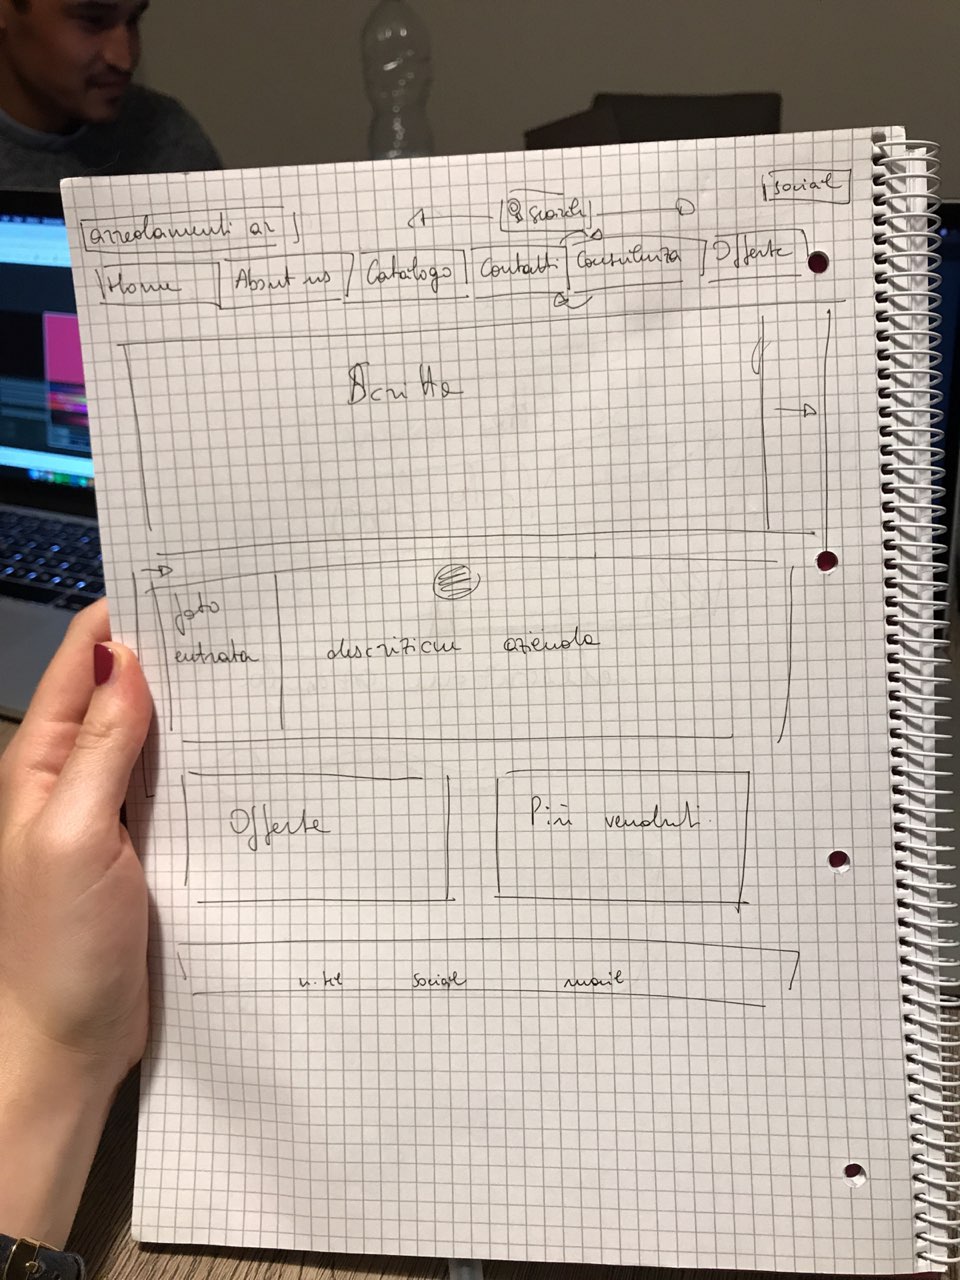 social
search
arredamenti ar
Home About us Catalogo Contatti Consulenza Offerte
Scritta
foto
entrata descrizione azienda
Offerte Più venduti
n. tel social mail